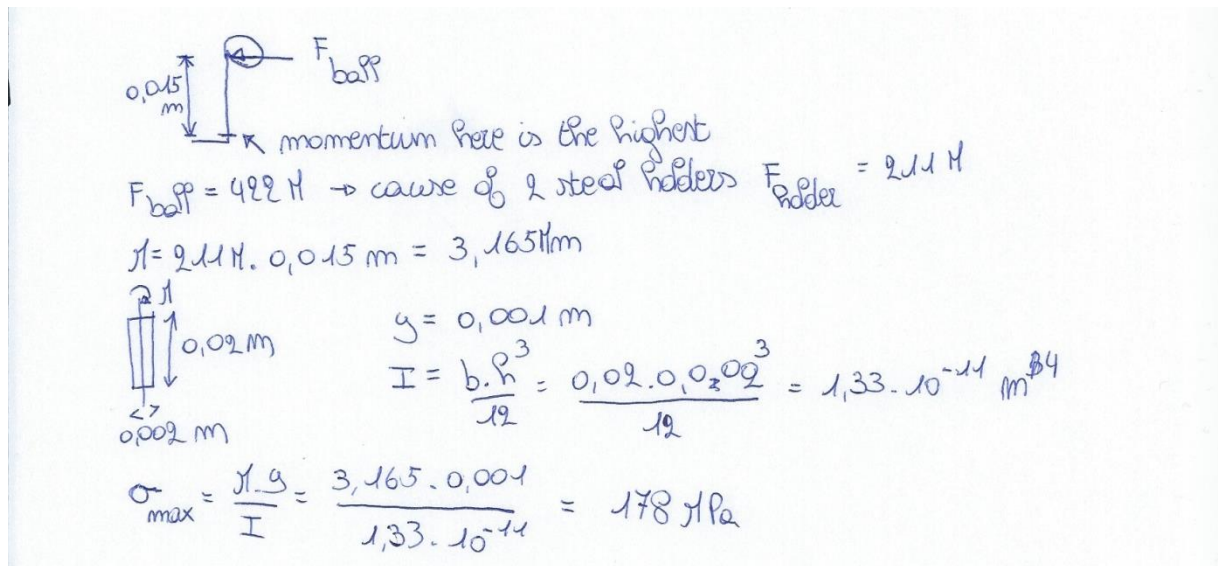 0,015 m
F ball
momentum here is the highest
F ball = 422 N → cause of 2 steal holders F holder = 211 N
M = 211 N . 0,015 m = 3,165 Nm
M
0,02 m
0,002 m
y = 0,001 m
I = b.h³/12 = 0,02 . 0,002³/12 = 1,33 . 10⁻¹¹ m⁴
σ max = M.y/I = 3,165 . 0,001/1,33 . 10⁻¹¹ = 178 MPa